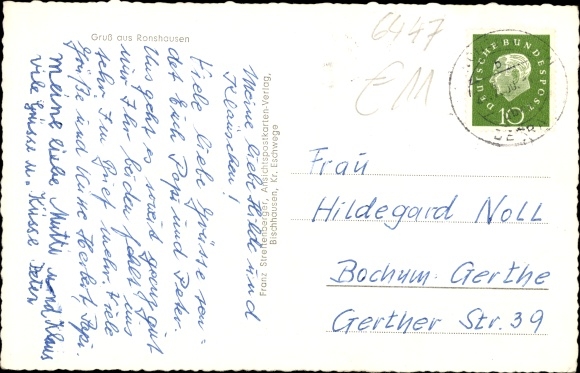 Gruß aus Ronshausen
6447
€11
DEUTSCHE BUNDESPOST
10
Meine liebe und
Kläuschen!
Viele liebe Grüsse sen-
det Euch Papi und Peter.
Uns geht es soweit ganz gut
nur Ihr beiden fehlt uns
sehr. Im Brief mehr. Viele
Grüße und Küsse Herbert, Papi.
Meine liebe Mutti und Klaus
viele Grüsse u. Küsse Peter
Franz Streffenberger, Ansichtspostkarten-Verlag,
Bischhausen, Kr. Eschwege
Frau
Hildegard Noll
Bochum-Gerthe
Gerther Str. 39